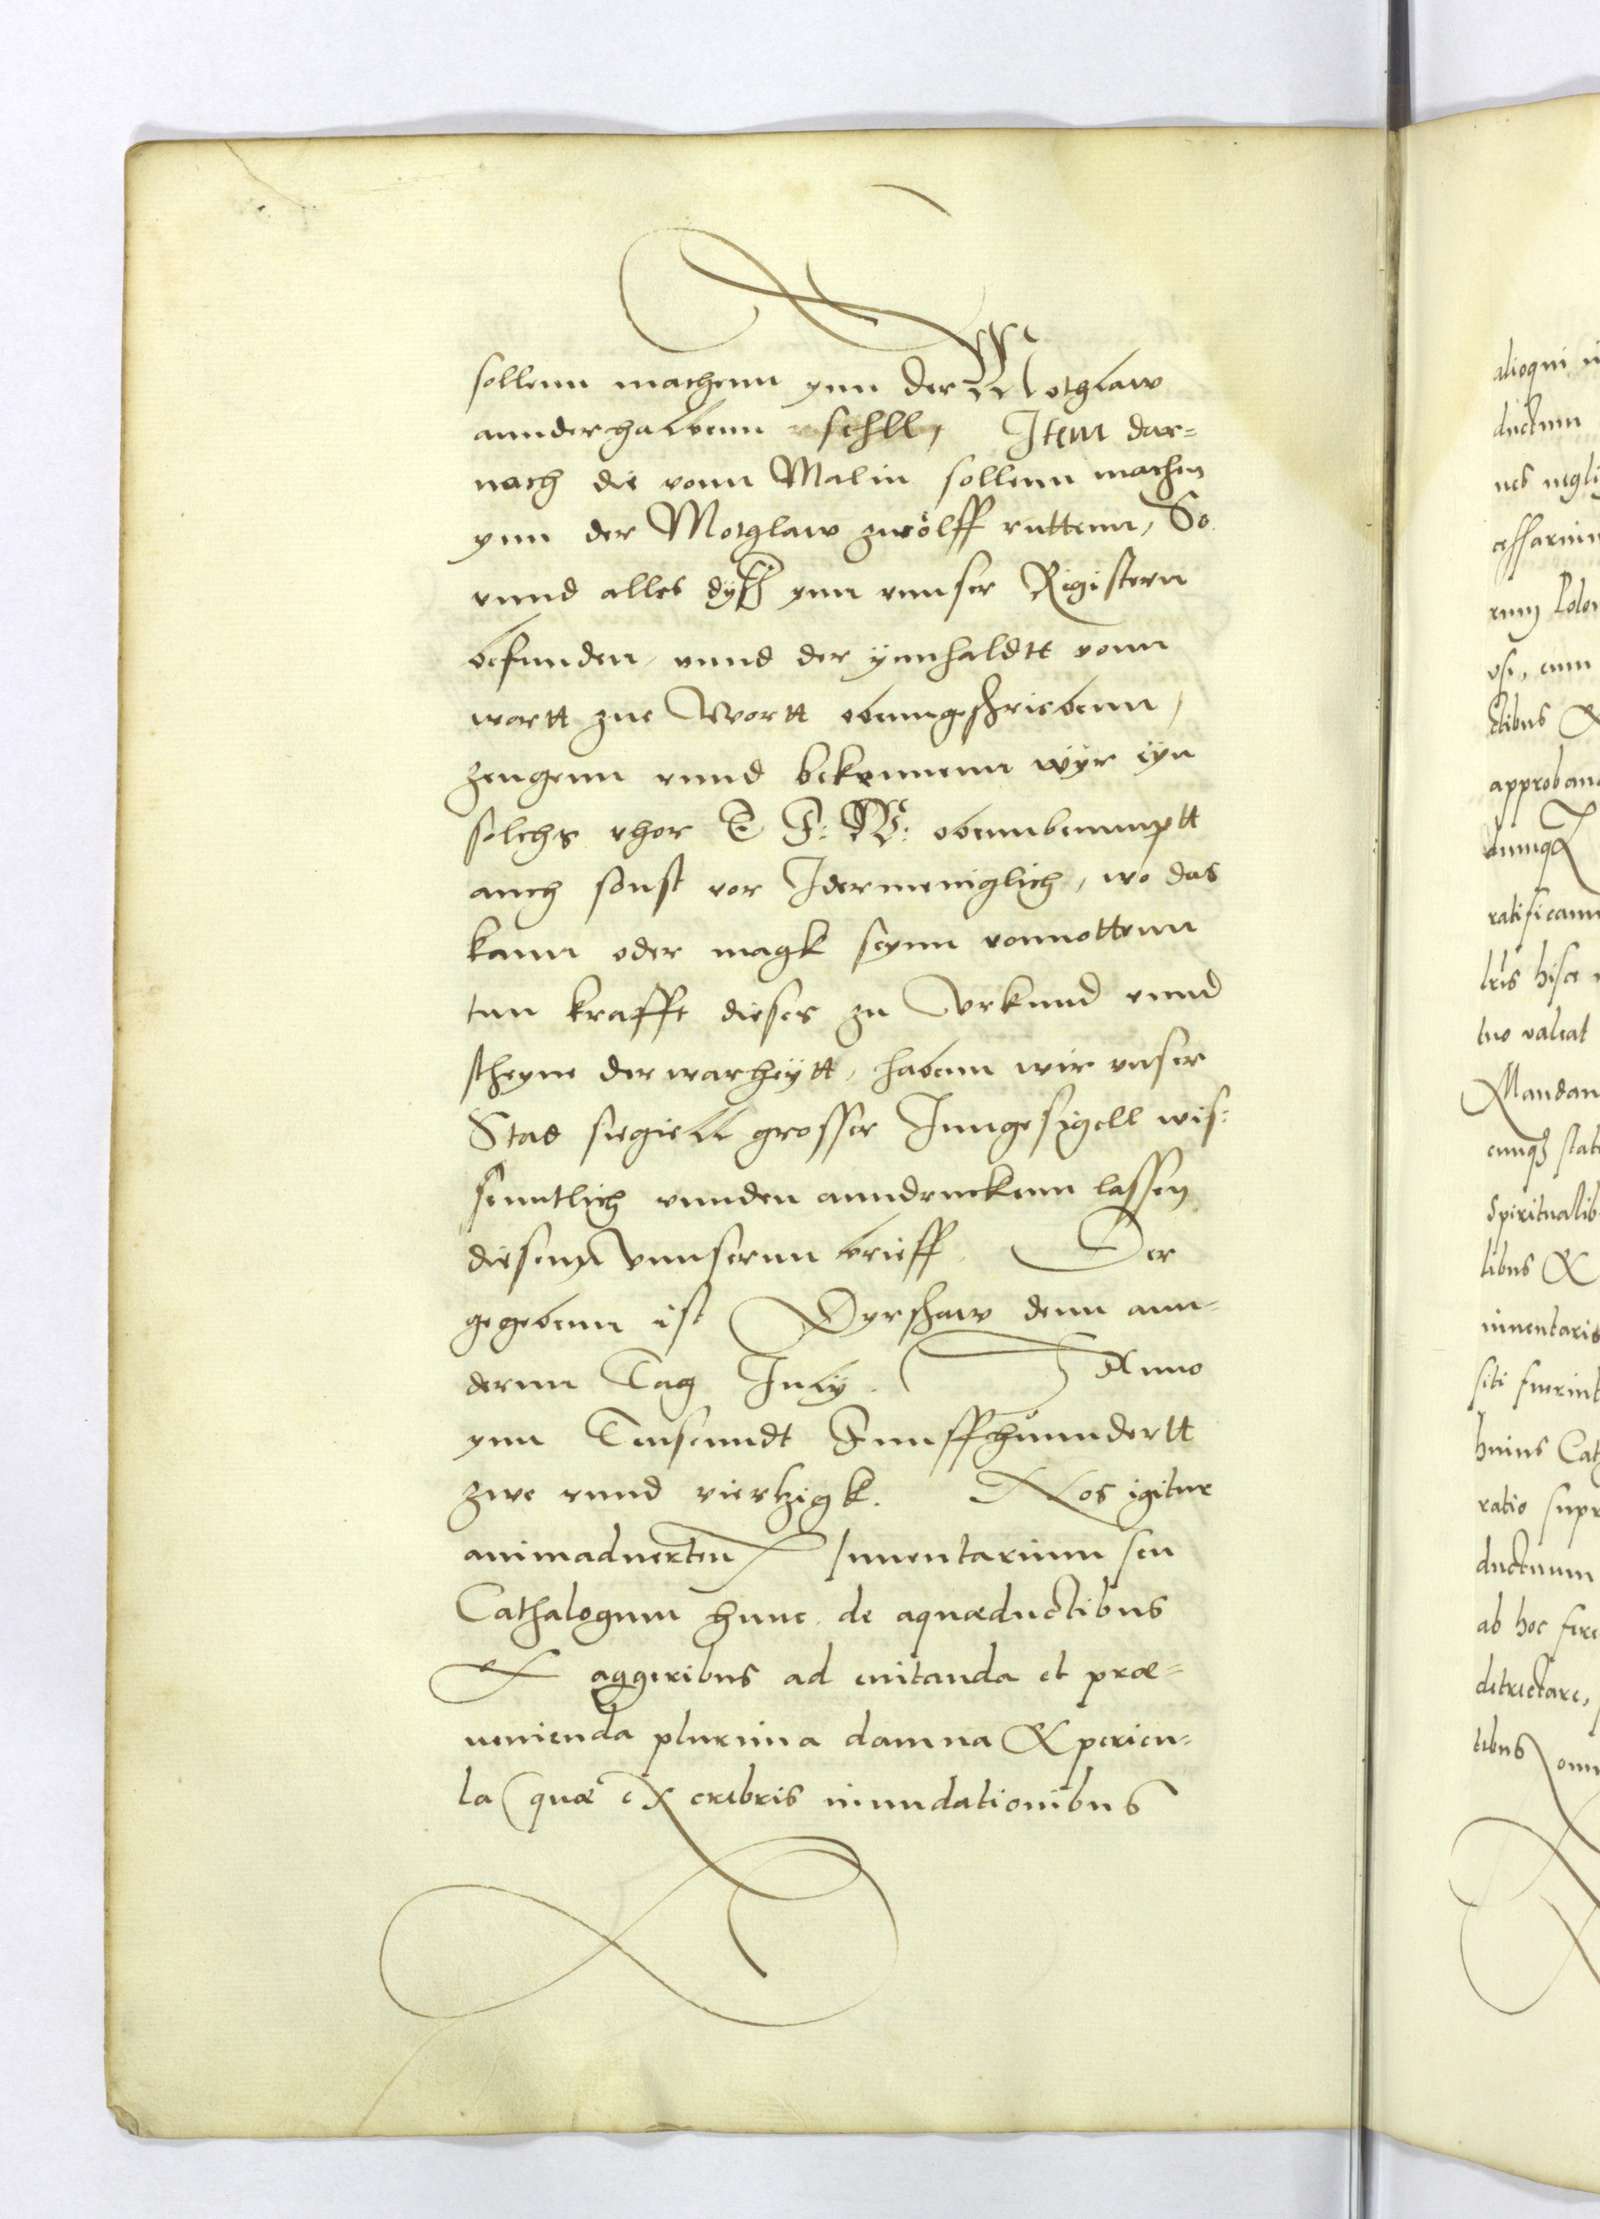 sollenn machenn ynn der Motglaw
annderhalbenn sehll, Item dar=
nach die vonn Malin sollenn machen
ynn der Motglaw zwölff ruttenn, So
vnnd alles dyß ynn vnnser Rigistern
befunden, vnnd der ynnhaldtt vonn
wortt zue Wortt obenngeschriebenn,
zeugenn vnnd bekennenn wÿr eyn
solchs vhor E F: W: obennbenumptt
auch sonst vor Idermeniglich, wo das
kann oder magk seynn vonnottenn
inn krafft dieses zu Vrkund vnnd
scheyne der warheÿtt, habenn wir vnser
Stad siegiell grosser Inngesigell wis=
senntlich vnnden anndruckenn lassen
diesenn Vnnsernn brieff. Der
gegebenn ist Dyrschaw denn ann=
dernn Tag July. Anno
ynn Teusenndt Funffhunndertt
zwe vnnd viertzigk. Nos igitur
animaduerten Inuentarium seu
Cathalogum hunc de aquæductibus
& aggeribus ad euitanda et præ=
uenienda plurima damna & pericu=
la (quæ ex crebris inundationibus
alioqui
ductum
cessarium
cum
ctibus &
approban
ratificam
hisce
tuo valeat
Mandan
cunq3 stat
Spiritualib
libus &
inuentaris
siti fuerint
huius Cat
ratio supr
ductuum
ab hoc fere
detrectare,
tibus omn